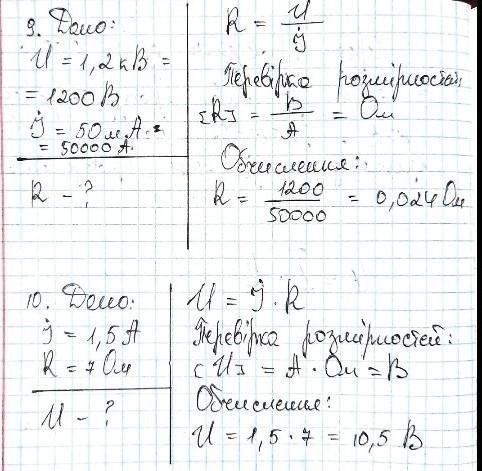 9. Дано:
U = 1,2 кВ =
= 1200 В
I = 50 мА =
= 50000 А
R - ?
R = U / I
Перевірка розмірностей
[R] = В / А = Ом
Обчислення:
R = 1200 / 50000 = 0,024 Ом
10. Дано:
I = 1,5 А
R = 7 Ом
U - ?
U = I · R
Перевірка розмірностей:
[U] = А · Ом = В
Обчислення:
U = 1,5 · 7 = 10,5 В